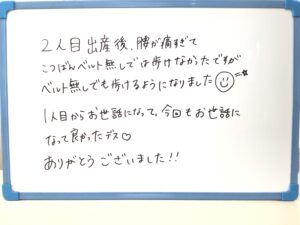 2人目出産後、腰が痛すぎて
こつばんベルト無しでは歩けなかったですが
ベルト無しでも歩けるようになりました
1人目からお世話になって、今回もお世話に
なって良かったデス♡
ありがとうございました!!